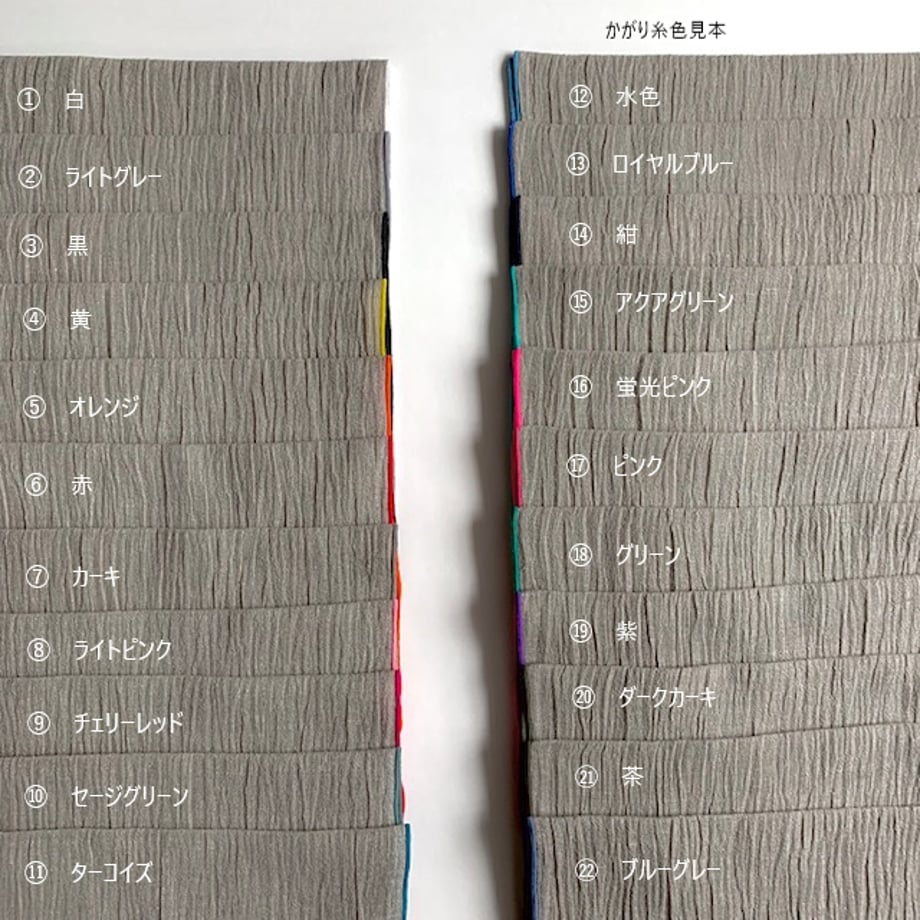 かがり糸色見本
① 白
② ライトグレー
③ 黒
④ 黄
⑤ オレンジ
⑥ 赤
⑦ カーキ
⑧ ライトピンク
⑨ チェリーレッド
⑩ セージグリーン
⑪ ターコイズ
⑫ 水色
⑬ ロイヤルブルー
⑭ 紺
⑮ アクアグリーン
⑯ 蛍光ピンク
⑰ ピンク
⑱ グリーン
⑲ 紫
⑳ ダークカーキ
㉑ 茶
㉒ ブルーグレー